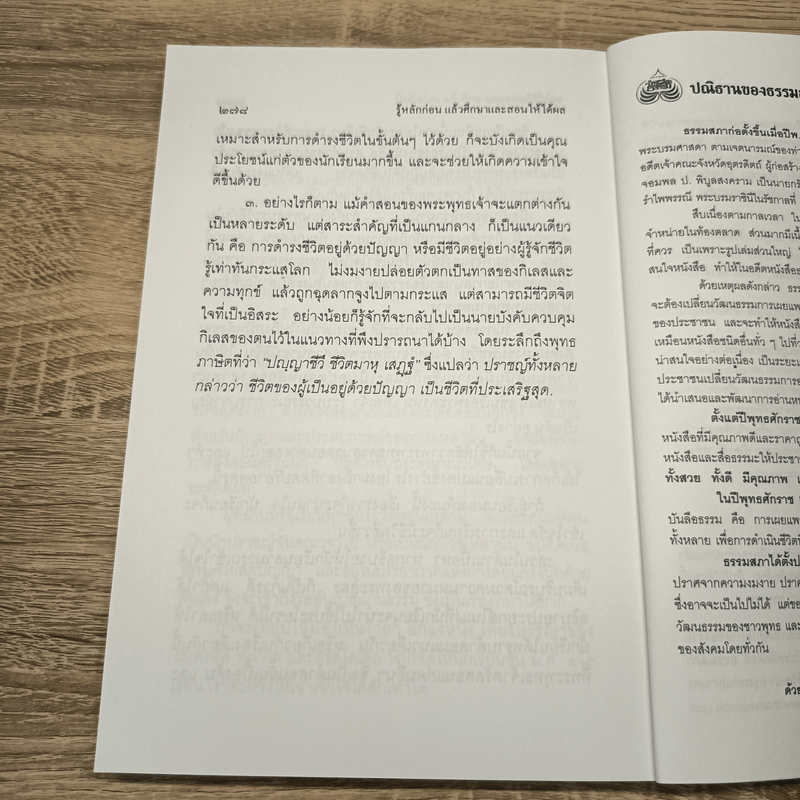 ๒๗๘ รู้หลักก่อน แล้วศึกษาและสอนให้ได้ผล
เหมาะสำหรับการดำรงชีวิตในขั้นต้นๆ ไว้ด้วย ก็จะบังเกิดเป็นคุณ
ประโยชน์แก่ตัวของนักเรียนมากขึ้น และจะช่วยให้เกิดความเข้าใจ
ดีขึ้นด้วย
๓. อย่างไรก็ตาม แม้คำสอนของพระพุทธเจ้าจะแตกต่างกัน
เป็นหลายระดับ แต่สาระสำคัญที่เป็นแกนกลาง ก็เป็นแนวเดียว
กัน คือ การดำรงชีวิตอยู่ด้วยปัญญา หรือมีชีวิตอยู่อย่างผู้รู้จักชีวิต
รู้เท่าทันกระแสโลก ไม่งมงายปล่อยตัวตกเป็นทาสของกิเลสและ
ความทุกข์ แล้วถูกฉุดลากจูงไปตามกระแส แต่สามารถมีชีวิตจิต
ใจที่เป็นอิสระ อย่างน้อยก็รู้จักที่จะกลับไปเป็นนายบังคับควบคุม
กิเลสของตนไว้ในแนวทางที่พึงปรารถนาได้บ้าง โดยระลึกถึงพุทธ
ภาษิตที่ว่า "ปญฺญาชีวี ชีวิตมาหุ เสฏฺฐํ" ซึ่งแปลว่า ปราชญ์ทั้งหลาย
กล่าวว่า ชีวิตของผู้เป็นอยู่ด้วยปัญญา เป็นชีวิตที่ประเสริฐสุด.
ปณิธานของธรรมะ
ธรรมสภาก่อตั้งขึ้นเมื่อปีพ.
พระบรมศาสดา ตามเจตนารมณ์ของท่า
อดีตเจ้าคณะจังหวัดอุตรดิตถ์ ผู้ก่อสร้าง
จอมพล ป. พิบูลสงคราม เป็นนายกรั
รำไพพรรณี พระบรมราชินีในรัชกาลที่
สืบเนื่องตามกาลเวลา ใน
จำหน่ายในท้องตลาด ส่วนมากมีเนื้
ที่ควร เป็นเพราะรูปเล่มส่วนใหญ่
สนใจหนังสือ ทำให้ในอดีตหนังสือ
ด้วยเหตุผลดังกล่าว ธรร
จะต้องเปลี่ยนวัฒนธรรมการเผยแพ
ของประชาชน และจะทำให้หนังสื
เหมือนหนังสือชนิดอื่นทั่ว ๆ ไปที่ว
น่าสนใจอย่างต่อเนื่อง เป็นระยะเ
ประชาชนเปลี่ยนวัฒนธรรมการอ
ได้นำเสนอและพัฒนาการอ่านหน
ตั้งแต่ปีพุทธศักราช
หนังสือที่มีคุณภาพดีและราคาถู
หนังสือและสื่อธรรมะให้ประชา
ทั้งสวย ทั้งดี มีคุณภาพ เ
ในปีพุทธศักราช
บันลือธรรม คือ การเผยแพ
ทั้งหลาย เพื่อการดำเนินชีวิต
ธรรมสภาได้ตั้งป
ปราศจากความงมงาย ปราศ
ซึ่งอาจจะเป็นไปไม่ได้ แต่ขอ
วัฒนธรรมของชาวพุทธ และ
ของสังคมโดยทั่วกัน
ด้วย